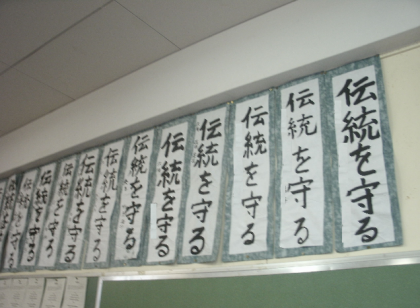 伝統を守る
伝統を守る
伝統を守る
伝統を守る
伝統を守る
伝統を守る
伝統を守る
伝統を守る
伝統を守る
伝統を守る
伝統を守る
伝統を守る